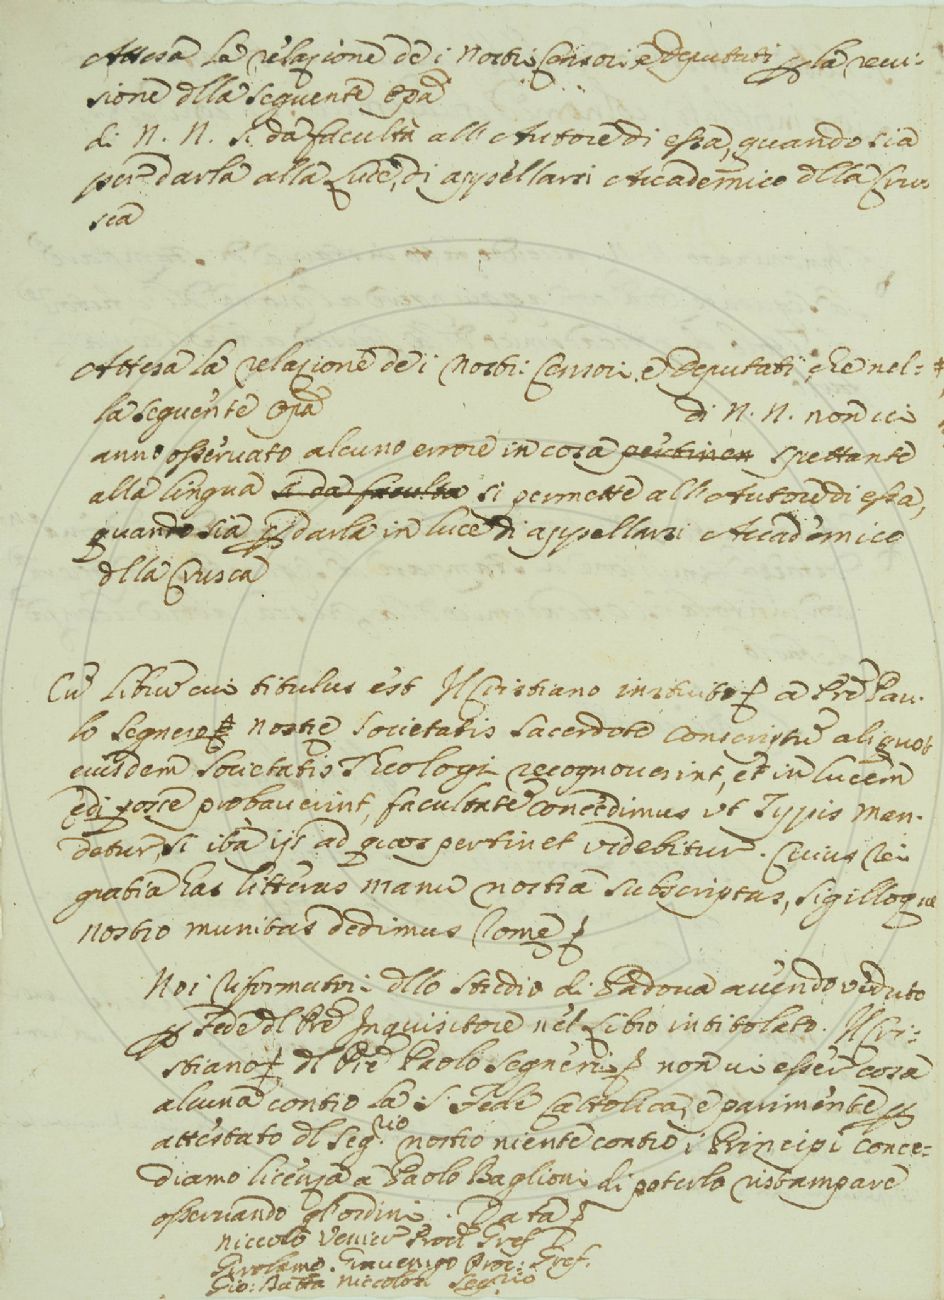 Attesa la relazione de i nostri Censori, e Deputati p la revi-
sione dlla seguente Opa
di N. N. si dà facultà all'Autore di essa, quando sia
per darla alla luce, di appellarsi Accademico dlla Crus
sca
Attesa la relazione de i nostri Censori, e Deputati, che nel-
la seguente Opa di N. N. non vi
anno osservato alcuno errore in cosa pertinen spettante
alla lingua si da faculta si permette all'Autore di essa,
quando sia p darla in luce di appellarsi Accademico
dlla Crusca
Cu librũ cui titulus est Il Cristiano instruito a Pre Pau-
lo Segnero nostre Societatis Sacerdote conscriptũ aliquot
eiusdem Societatis Theologi recognoverint, et in lucem
edi posse probaverint, facultatẽ concedimus ut Typis man-
detur, si iba ijs ad quos pertinet videbitur. Cuius rei
gratia has litteras manu nostra subscriptas, sigilloque
nostro munitas dedimus Rome
Noi Riformatri dllo studio di Padova avendo veduto
p Fede dl Pre Inquisitore nel Libro intitolato. Il Cri-
stiano dl Pre Paolo Segneri non vi esser cosa
alcuna contro la S. Fede Cattolica, e parimente p
attestato dl Seg.rio nostro niente contro i Principi conce-
diamo licenza a Paolo Baglioni di poterlo ristampare
osservando gl'ordini. Data
Niccolò Venier Procr Ref
Girolamo Gravenigo Proc: Ref.
Gio: Batta Niccolosi Seg.rio